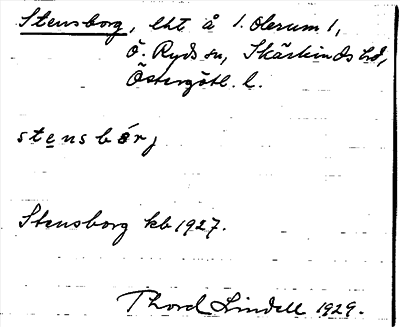 Stensborg, lht å 1. Olerum 1,
Ö. Ryds sn, Skärkinds hd,
Östergötl. l.
stensbórj
Stensborg kb 1927.
Thord Lindell 1929.